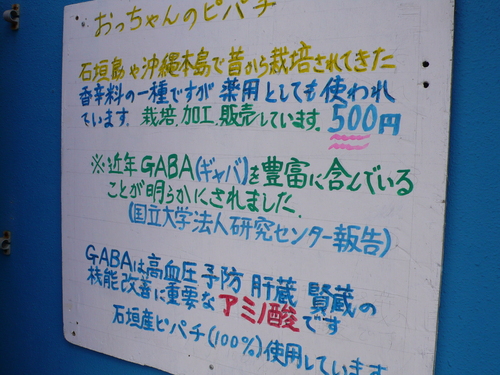 おっちゃんのピパチ
石垣島や沖縄本島で昔から栽培されてきた
香辛料の一種ですが薬用としても使われ
ています. 栽培.加工.販売しています. 500円
※近年GABA(ギャバ)を豊富に含んでいる
ことが明らかにされました.
(国立大学法人研究センター報告)
GABAは高血圧予防 肝蔵 賢蔵の
機能改善に重要なアミノ酸です
石垣産ピパチ(100%)使用しています